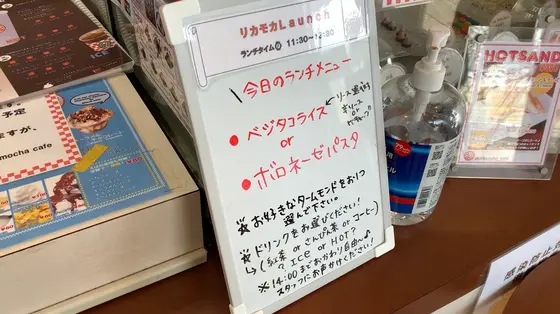 リカモカLaunch
ランチタイム 11:30~12:30
今日のランチメニュー
• ベジタコライス
or
• ボロネーゼパスタ
※お好きなタームモンドをお1つ
選んで下さい。
※ドリンクをお選びください!
↳(紅茶 or さんぴん茶 or コーヒー)
? ICE or HOT?
※14:00までおかわり自由~♪
スタッフにお声かけください!
予定
ますが、
mocha cafe
HOTSAND
感染防止